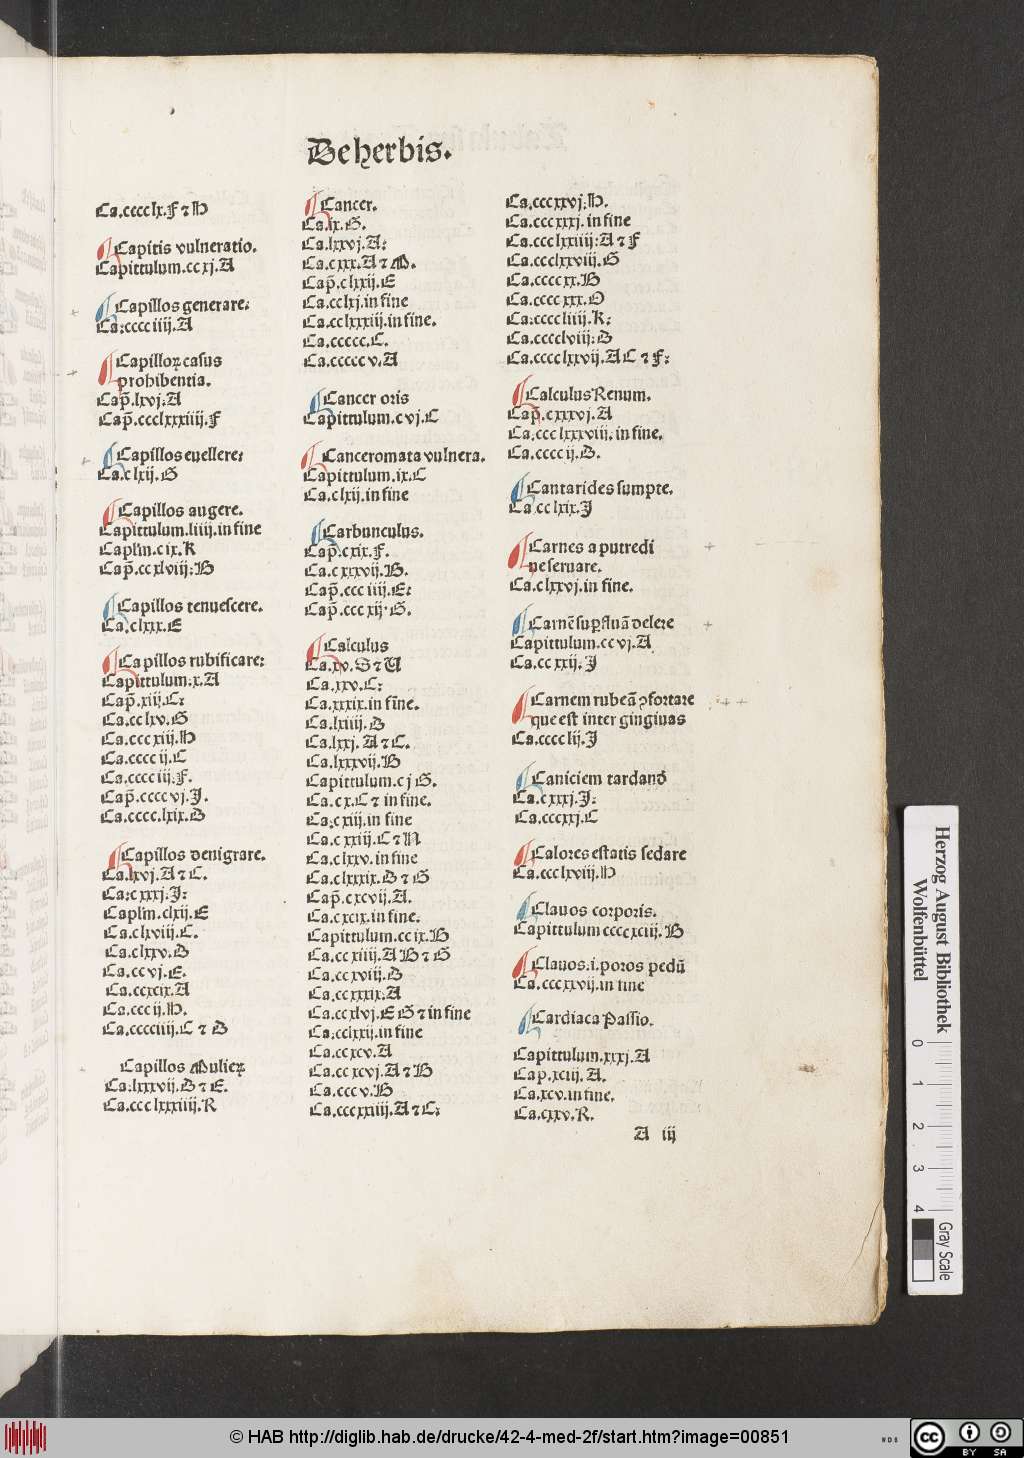 De herbis.
Ca.cccclx.F ⁊ H
Capitis vulneratio.
Capittulum.ccxj.A
Capillos generare:
Ca:cccciiij.A
Capilloꝝ casus
prohibentia.
Cap̃.lxvj.A
Cap̃.ccclxxxiiij.F
Capillos euellere:
Ca.clxij.G
Capillos augere.
Capittulum.liiij.in fine
Caplm̃.cix.K
Cap̃.ccxlviij:B
Capillos tenuescere.
Ca.clxxx.E
Capillos rubificare:
Capittulum:x.A
Cap̃.xiij.C:
Ca.cclxv.G
Ca.cccxiij.H
Ca.ccccij.C
Ca.cccciij.F.
Cap̃.ccccvj.J.
Ca.cccc.lxix.D
Capillos denigrare.
Ca.lxvj.A ⁊ C.
Ca:cxxxj.J:
Caplm̃.clxij.E
Ca.clxviij.C.
Ca.clxxv.D
Ca.ccvj.E.
Ca.ccxcix.A
Ca.cccij.H.
Ca.cccciiij.C ⁊ D
Capillos Mulieꝝ
Ca:lxxxvij.D ⁊ E.
Ca.ccclxxxiiij.K
Cancer.
Ca.ix.G.
Ca.lxxvj.A:
Ca.cxxx.A ⁊ M.
Cap̃.clxxij.E
Ca.cclxj.in fine
Ca.cclxxxiij.in fine.
Ca.ccccc.C.
Ca.cccccv.A
Cancer oris
Capittulum.cvj.C
Canceromata vulnera.
Capittulum.ix.C
Ca.clxij.in fine
Carbunculus.
Cap̃.cxix.F.
Ca.cxxxvij.B.
Cap̃.ccciiij.E:
Cap̃.cccxij.G.
Calculus
Ca.xv.S ⁊ U
Ca.xxv.C:
Ca.xxxix.in fine.
Ca.lxiiij.D
Ca.lxxj.A ⁊ C.
Ca.lxxxvij.B
Capittulum.cj G.
Ca.cx.C ⁊ in fine.
Ca:cxiij.in fine
Ca.cxxiij.C ⁊ N
Ca.clxxv.in fine
Ca.clxxxix.D ⁊ G
Cap̃.cxcvij.A.
Ca.cxcix.in fine.
Capittulum.ccix.B
Ca.ccxiiij.A B ⁊ G
Ca.ccxviij.D
Ca.ccxxxix:A
Ca.ccxlvj.E G ⁊ in fine
Ca:cclxxij.in fine
Ca.ccxcv.A
Ca.ccxcvj.A ⁊ B
Ca.cccv.B
Ca.cccxxiiij.A ⁊ C:
Ca.cccxxvj:H.
Ca.cccxxxj.in fine
Ca.ccclxxiiij:A ⁊ F
Ca.ccclxxviij.G
Ca.ccccxx.B
Ca.ccccxxx.O
Ca:ccccliiij.K:
Ca.cccclviij:D
Ca.cccclxxvij.A C ⁊ F:
Calculus Renum.
Cap̃.cxxxvj.A
Ca.ccclxxxviij.in fine.
Ca.ccccij.D.
Cantarides sumpte.
Ca.cclxix.J
Carnes a putredi
ne seruare.
Ca.clxxvj.in fine.
Carnẽ suꝑfluã delere
Capittulum.ccvj.A
Ca.ccxxij.J
Carnem rubeã ꝯfortare
que est inter gingiuas
Ca.cccclij.J
Caniciem tardandõ
Ca.cxxxj.J:
Ca.cccxxj.C
Calores estatis sedare
Ca.ccclxviij.H
Clauos corporis.
Capittulum ccccxciij.B
Clauos.i.poros pedũ
Ca.cccxxvij.in fine
Cardiaca Passio.
Capittulum.xxxj.A
Cap.xciij.A.
Ca.xcv.in fine.
Ca.cxxv.K.
A iij
Herzog August Bibliothek
Wolfenbüttel
0 1 2 3 4
Gray Scale
© HAB http://diglib.hab.de/drucke/42-4-med-2f/start.htm?image=00851
WDB
cc
BY SA